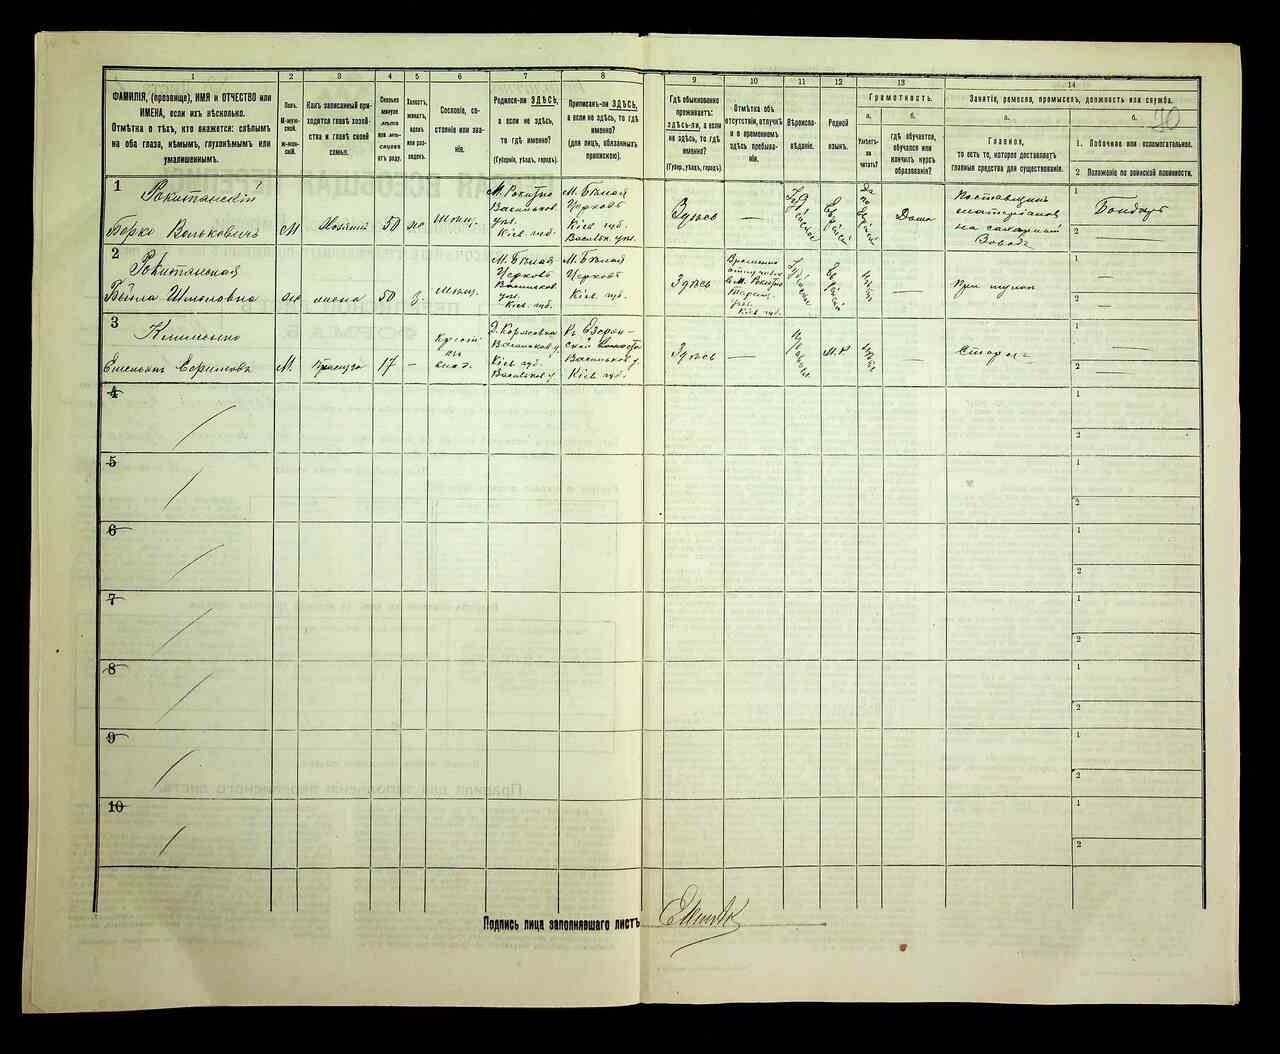 1
2
3
4
5
6
7
8
9
10
11
12
13
14
ФАМИЛІЯ, (прозвище), ИМЯ и ОТЧЕСТВО или
ИМЕНА, если ихъ нѣсколько.
Отмѣтка о тѣхъ, кто окажется: слѣпымъ
на оба глаза, нѣмымъ, глухонѣмымъ или
умалишеннымъ.
Полъ.
М-муж-
ской.
ж-жен-
скій.
Какъ записанный при-
ходится главѣ хозяй-
ства и главѣ своей
семьи.
Сколько
минуло
лѣтъ
или мѣ-
сяцевъ
отъ роду.
Холостъ,
женатъ,
вдовъ
или раз-
веденъ.
Сословіе, со-
стояніе или зва-
ніе.
Родился-ли ЗДѢСЬ,
а если не здѣсь,
то гдѣ именно?
(Губернія, уѣздъ, городъ).
Приписанъ-ли ЗДѢСЬ,
а если не здѣсь, то гдѣ
именно?
(для лицъ, обязанныхъ
припискою).
Гдѣ обыкновенно
проживаетъ:
здѣсь-ли, а если
не здѣсь, то гдѣ
именно?
(Губер., уѣздъ, городъ).
Отмѣтка объ
отсутствіи, отлучкѣ
и о временномъ
здѣсь пребыва-
ніи.
Вѣроиспо-
вѣданіе.
Родной
языкъ.
Грамотность.
а.
Умѣетъ-
ли
читать?
б.
гдѣ обучается,
обучался или
кончилъ курсъ
образованія?
Занятіе, ремесло, промыселъ, должность или служба.
а.
Главное,
то есть то, которое доставляетъ
главныя средства для существованія.
б.
20
1. Побочное или вспомогательное.
2 Положеніе по воинской повинности.
1
Рокитянскій
Берко Вольковичъ
М
Хозяинъ
50
же
мѣщ.
М. Рокитно
Васильков.
уѣз.
Кіев. губ.
М. Бѣлая
Церковь
Кіев. губ.
Васильк. уѣз.
Здѣсь
—
Іудейское
Еврейскій
Да
по
еврейски
Дома
Поставщикъ
матеріаловъ
на сахарный
Заводъ
1
Бондарь
2
—
2
Рокитянская
Бейла Шмоловна
же
жена
50
з.
мѣщ.
М. Бѣлая
Церковь
Васильков
уѣз.
Кіев. губ.
М. Бѣлая
Церковь
Кіев. губ.
Здѣсь
Временно
отлучилась
въ М. Рокитно
уѣз.
Кіев. губ.
Іудейское
Еврейскій
нѣтъ
—
При мужѣ
1
—
2
—
3
Клименко
Емельянъ Ефимовъ
М.
Прислуга
17
—
Крест
ья
нин.
Васильков у.
Кіев. губ.
Васильков у
Васильков у
Кіев. губ.
Здѣсь
—
М.Р
нѣтъ
—
Сторож
1
—
2
—
4
1
2
5
1
2
6
1
2
7
1
2
8
1
2
9
1
2
10
1
2
Подпись лица заполнявшаго листъ